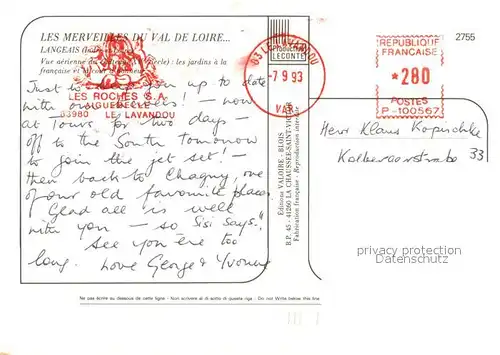 LES MERVEILLES DU VAL DE LOIRE...
LANGEAIS
Vue aérienne du château : les jardins à la
française et
Just to keep you up to date
with our travels! – now
at Tours for two days –
off to the South tomorrow
to join the jet set! –
then back to Chagny, one
of our old favourite places.
Glad all is well
with you – so Sisi says."
See you ere too
long. Love George & Yvonne
LES ROCHES S.A.
AIGUEBELLE
83980 LE LAVANDOU
PRODUCTION
LECONTE
83 LE LAVANDOU
-7 9 93
VAR
2755
REPUBLIQUE
FRANÇAISE
*280
POSTES
P-100567
Herr Klaus Kopischke
Kolbergerstraße 33
Editions VALOIRE - BLOIS
B.P. 45 - 41260 LA CHAUSSEE-SAINT-VICTOR
Fabrication française - Reproduction interdite
privacy protection
Datenschutz
Ne pas écrire au dessous de cette ligne - Non scrivere al di sotto di questa riga - Do not Write below this line